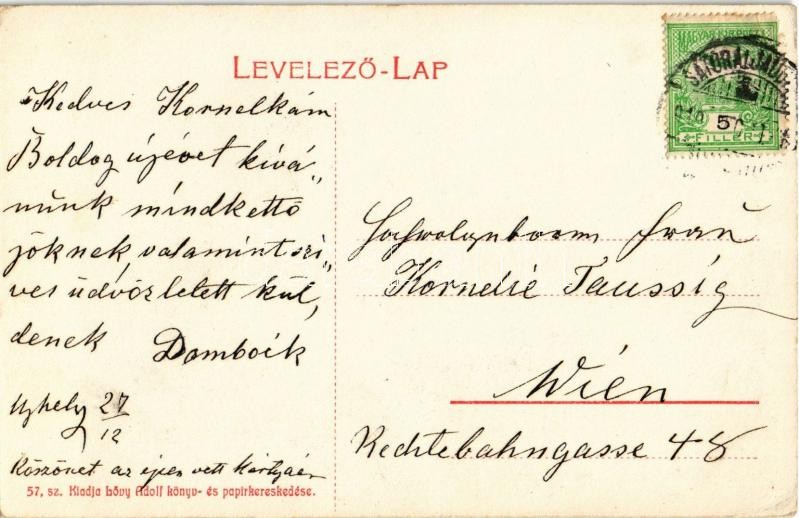 LEVELEZŐ-LAP
Kedves Kornelkám
Boldog újévet kívá„
nunk mindkettő
jöknek valamint szi„
ves üdvözletett kül„
denek Damboik
Ujhely 27/12
Köszönet az épen vett kártyáér
57. sz. Kiadja Lővy Adolf könyv- és papirkereskedése.
MAGYAR KIR. POSTA
SÁTORALJAÚJH
5
FILLÉR
Frau
Kornelie Taussig
Wien
Rechtebahngasse 48